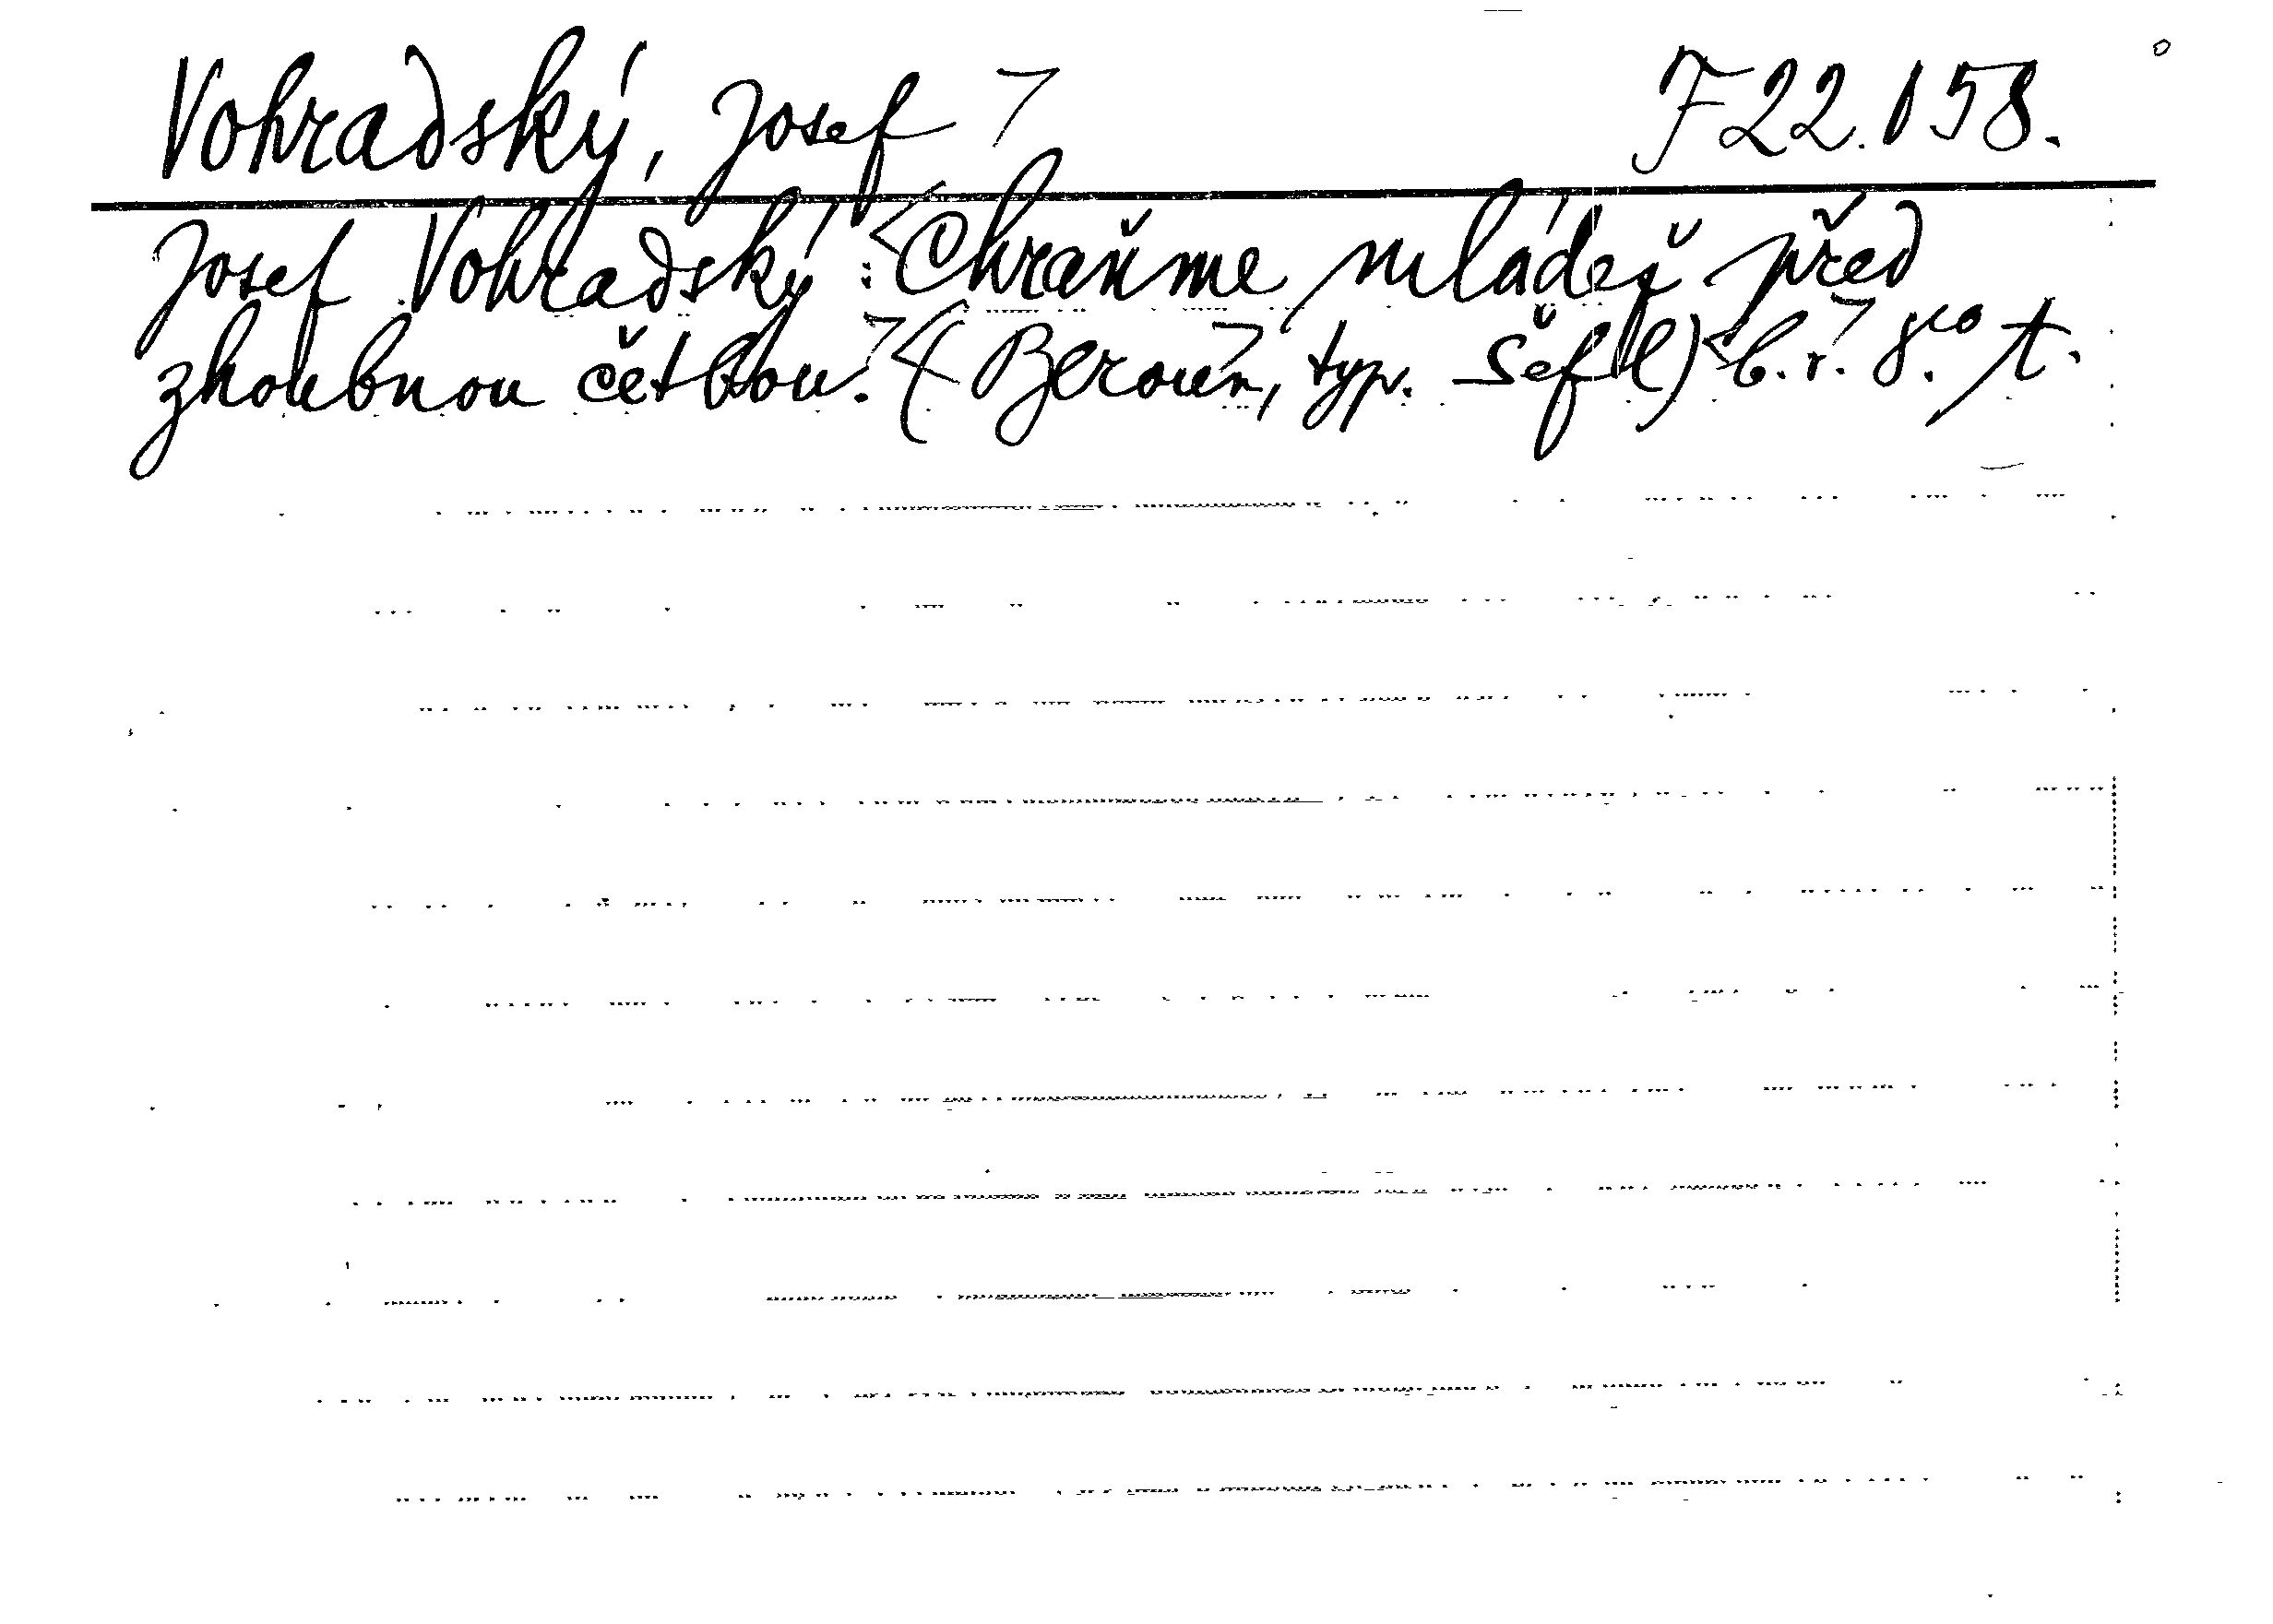 Vohradský, Josef F 22.158.
Josef Vohradský: Chraňme mládež před
zhoubnou četbou. (Beroun, typ. Šefl) b.r. 8° t.